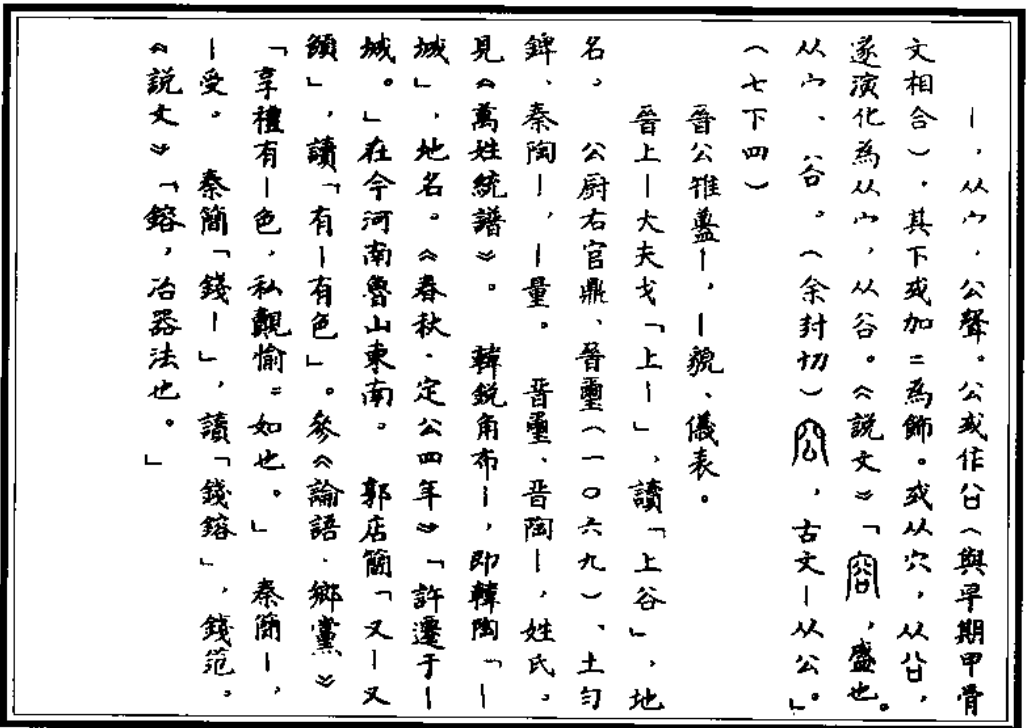 ｜，从宀，公聲。公或作㕣（與早期甲骨
文相合），其下或加＝為飾。或从穴，从㕣，
遂演化為从宀，从谷。《說文》「容，盛也。
从宀、谷。（余封切）㝐，古文｜从公。」
（七下四）
晉公㠱䀇｜，｜貌、儀表。
晉上｜大夫戈「上｜」，讀「上谷」，地
名。　公廚右官鼎、晉璽（一〇六九）、土匀
錍、秦陶｜，｜量。　晉璽、晋陶｜，姓氏。
見《萬姓統譜》。　韓銳角布｜，即韓陶「｜
城」，地名。《春秋·定公四年》「許遷于｜
城。」在今河南魯山東南。　郭店簡「又｜又
頟」，讀「有｜有色」。參《論語·鄉黨》
「享禮有｜色，私覿愉＝如也。」　秦簡｜，
｜受。　秦簡「錢｜」，讀「錢鎔」，錢范。
《說文》「鎔，冶器法也。」